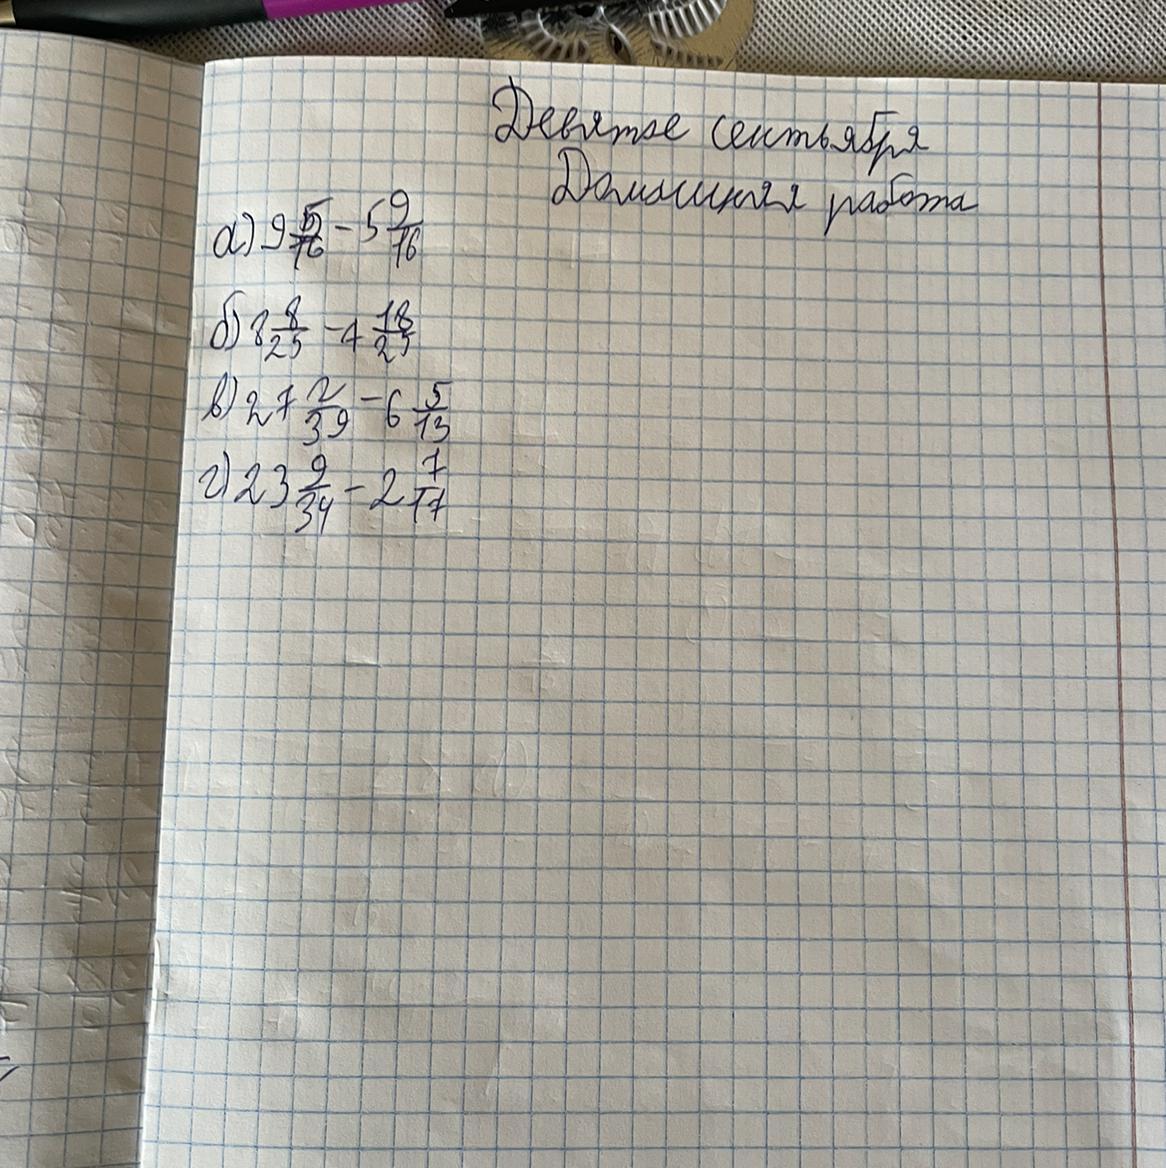 Девятое сентьября
Домашняя работа
а) 9 5/16 - 5 9/16
б) 8 8/25 - 4 18/25
в) 27 2/39 - 6 5/13
г) 23 9/34 - 2 7/17